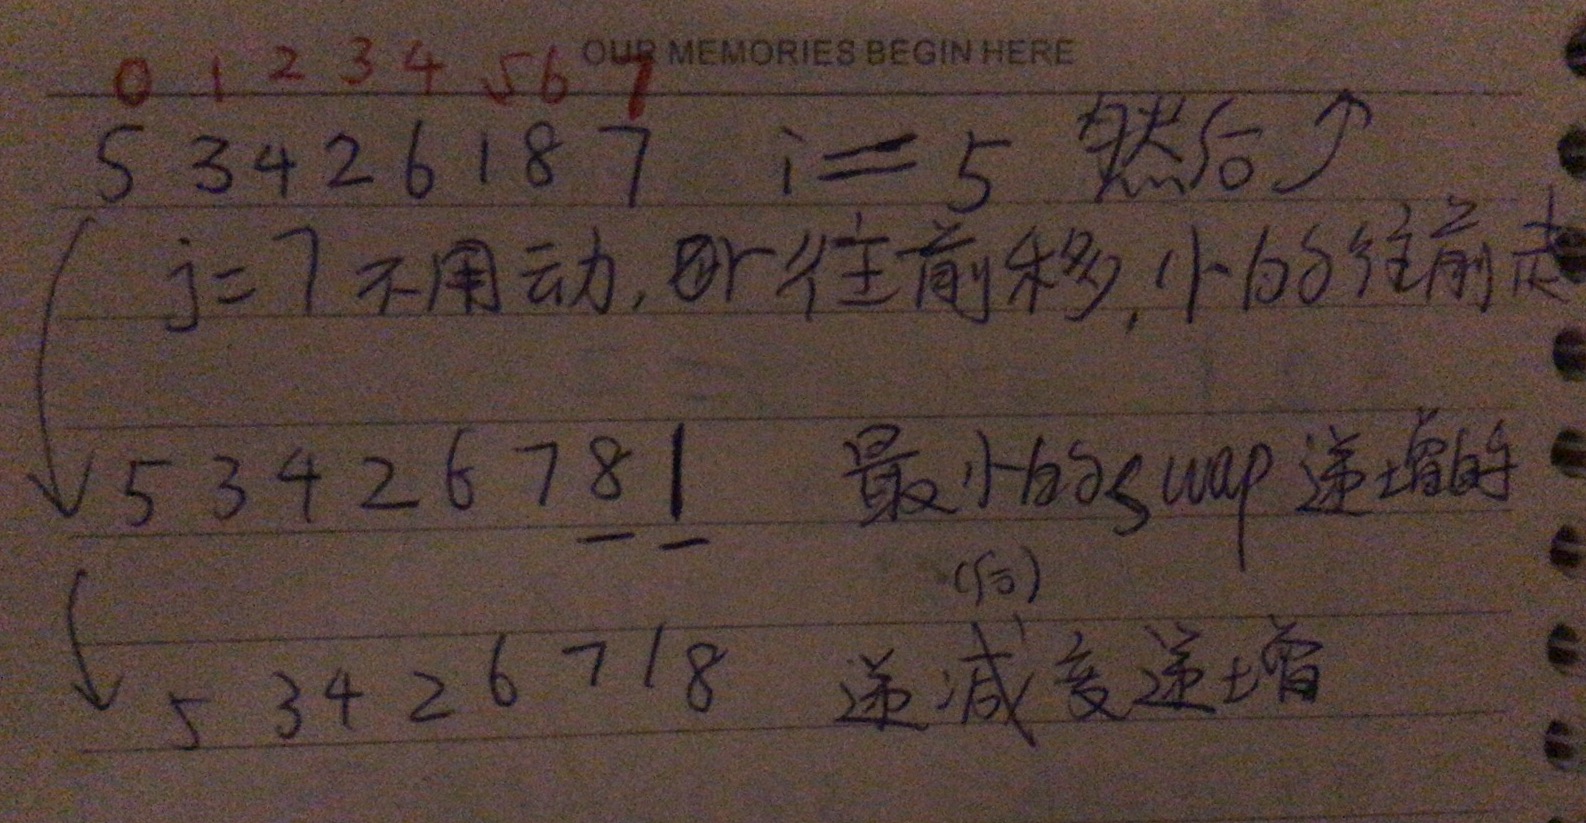 OUR MEMORIES BEGIN HERE
0 1 2 3 4 5 6 7
5 3 4 2 6 1 8 7 i = 5 然后
j = 7 不用动, 往前移, 小的往前走
5 3 4 2 6 7 8 1 最小的swap 递增的
(后)
5 3 4 2 6 7 1 8 递减变递增